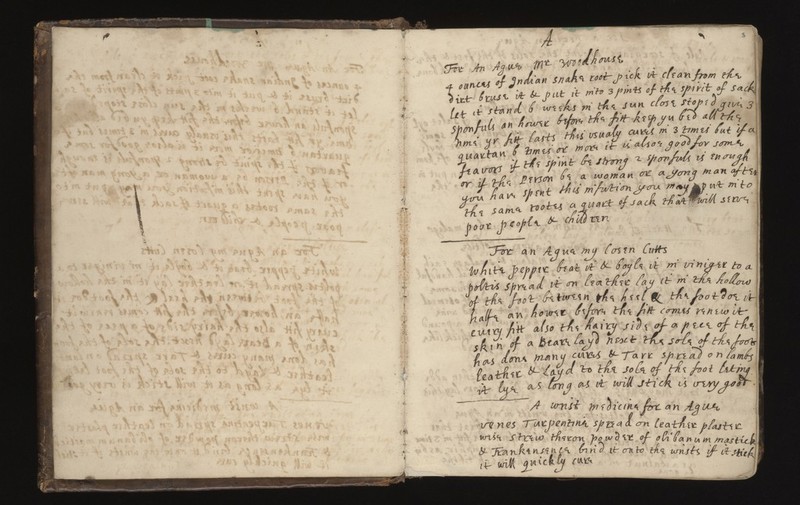 A
3
For An Ague Mr Woodhouse
4 ounces of Indian snake root pick it clean from the
dirt bruse it & put it into 3 pints of the spirit of sack
let it stand 6 weeks in the sun close stoped give 3
sponfuls an hower before the fitt keep yu bed all the
time yr fitt lasts this usualy cures in 3 times but if a
quartan 6 times or more it is alsoe good for some
feavors if the spirit be strong 2 sponfuls is enough
or if the Person be a woman or a yong man after
you have spent this infution you may put into
the same rootes a quart of sack that will serve
poor people & children
For an Ague my Cosen Cutts
white pepper beat it & boyle it in viniger to a
poltis spread it on leather lay it in the hollow
of the foot between the heel & the foot doe it
halfe an hower before the fitt comes renew it
every fitt also the hairy side of a pece of the
skin of a Beare layd next the sole of the foot
has done many cures & Tarr spread on lambs
leather & layd to the sole of the foot leting
it lye as long as it will stick is very good
A wrist medicine for an Ague
venes Turpentine spread on leather plaster
wise strew theron powder of olibanum mastick
& Frankensense bind it onto the wrists if it stick
it will quickly cure